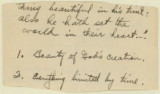 thing beautiful in his time:
also he hath set the
world in their heart..."
1. Beauty of God's creation.
2. limited by time.